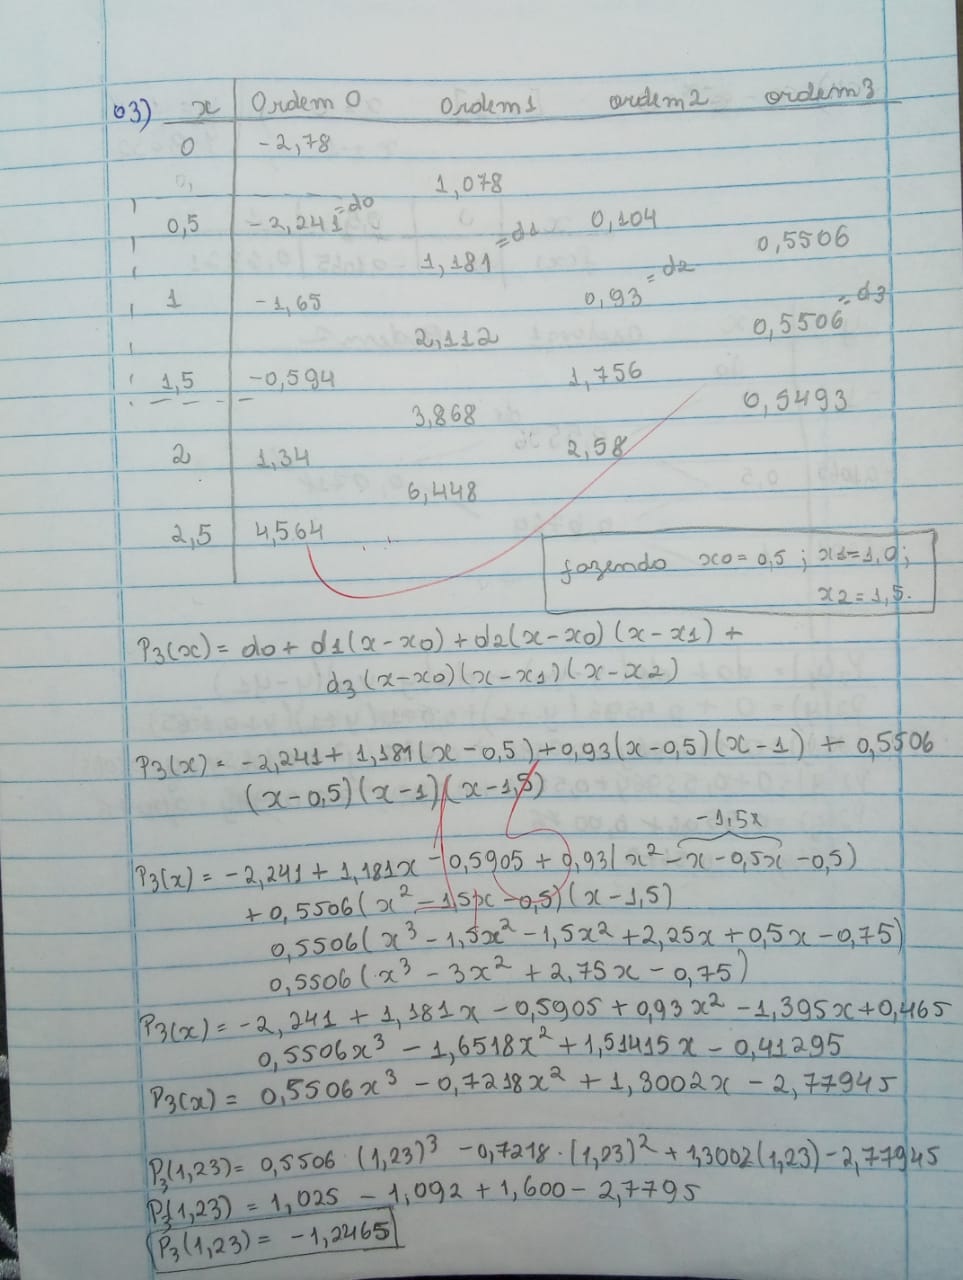 03) x Ordem 0 Ordem 1 ordem 2 ordem 3
0 -2,78
0, 1,078
0,5 -2,241 = d0 0,104
1,181 = d1 0,5506
1 -1,65 0,93 = d2
2,112 0,5506 = d3
1,5 -0,594 1,756
3,868 0,5493
2 1,34 2,58
6,448
2,5 4,564
fazendo x0 = 0,5 ; x1 = 1,0 ;
x2 = 1,5.
P3(x) = d0 + d1(x - x0) + d2(x - x0)(x - x1) +
d3(x-x0)(x-x1)(x-x2)
P3(x) = -2,241 + 1,181(x - 0,5) + 0,93(x-0,5)(x-1) + 0,5506
(x-0,5)(x-1)(x-1,5)
-1,5x
P3(x) = -2,241 + 1,181x - 0,5905 + 0,93(x² - x - 0,5x - 0,5)
+ 0,5506(x² - 1,5x - 0,5)(x - 1,5)
0,5506(x³ - 1,5x² - 1,5x² + 2,25x + 0,5x - 0,75)
0,5506(x³ - 3x² + 2,75x - 0,75)
P3(x) = -2,241 + 1,181x - 0,5905 + 0,93x² - 1,395x + 0,465
0,5506x³ - 1,6518x² + 1,51415x - 0,41295
P3(x) = 0,5506x³ - 0,7218x² + 1,3002x - 2,77945
P3(1,23) = 0,5506 · (1,23)³ - 0,7218 · (1,23)² + 1,3002(1,23) - 2,77945
P3(1,23) = 1,025 - 1,092 + 1,600 - 2,7795
P3(1,23) = -1,2465